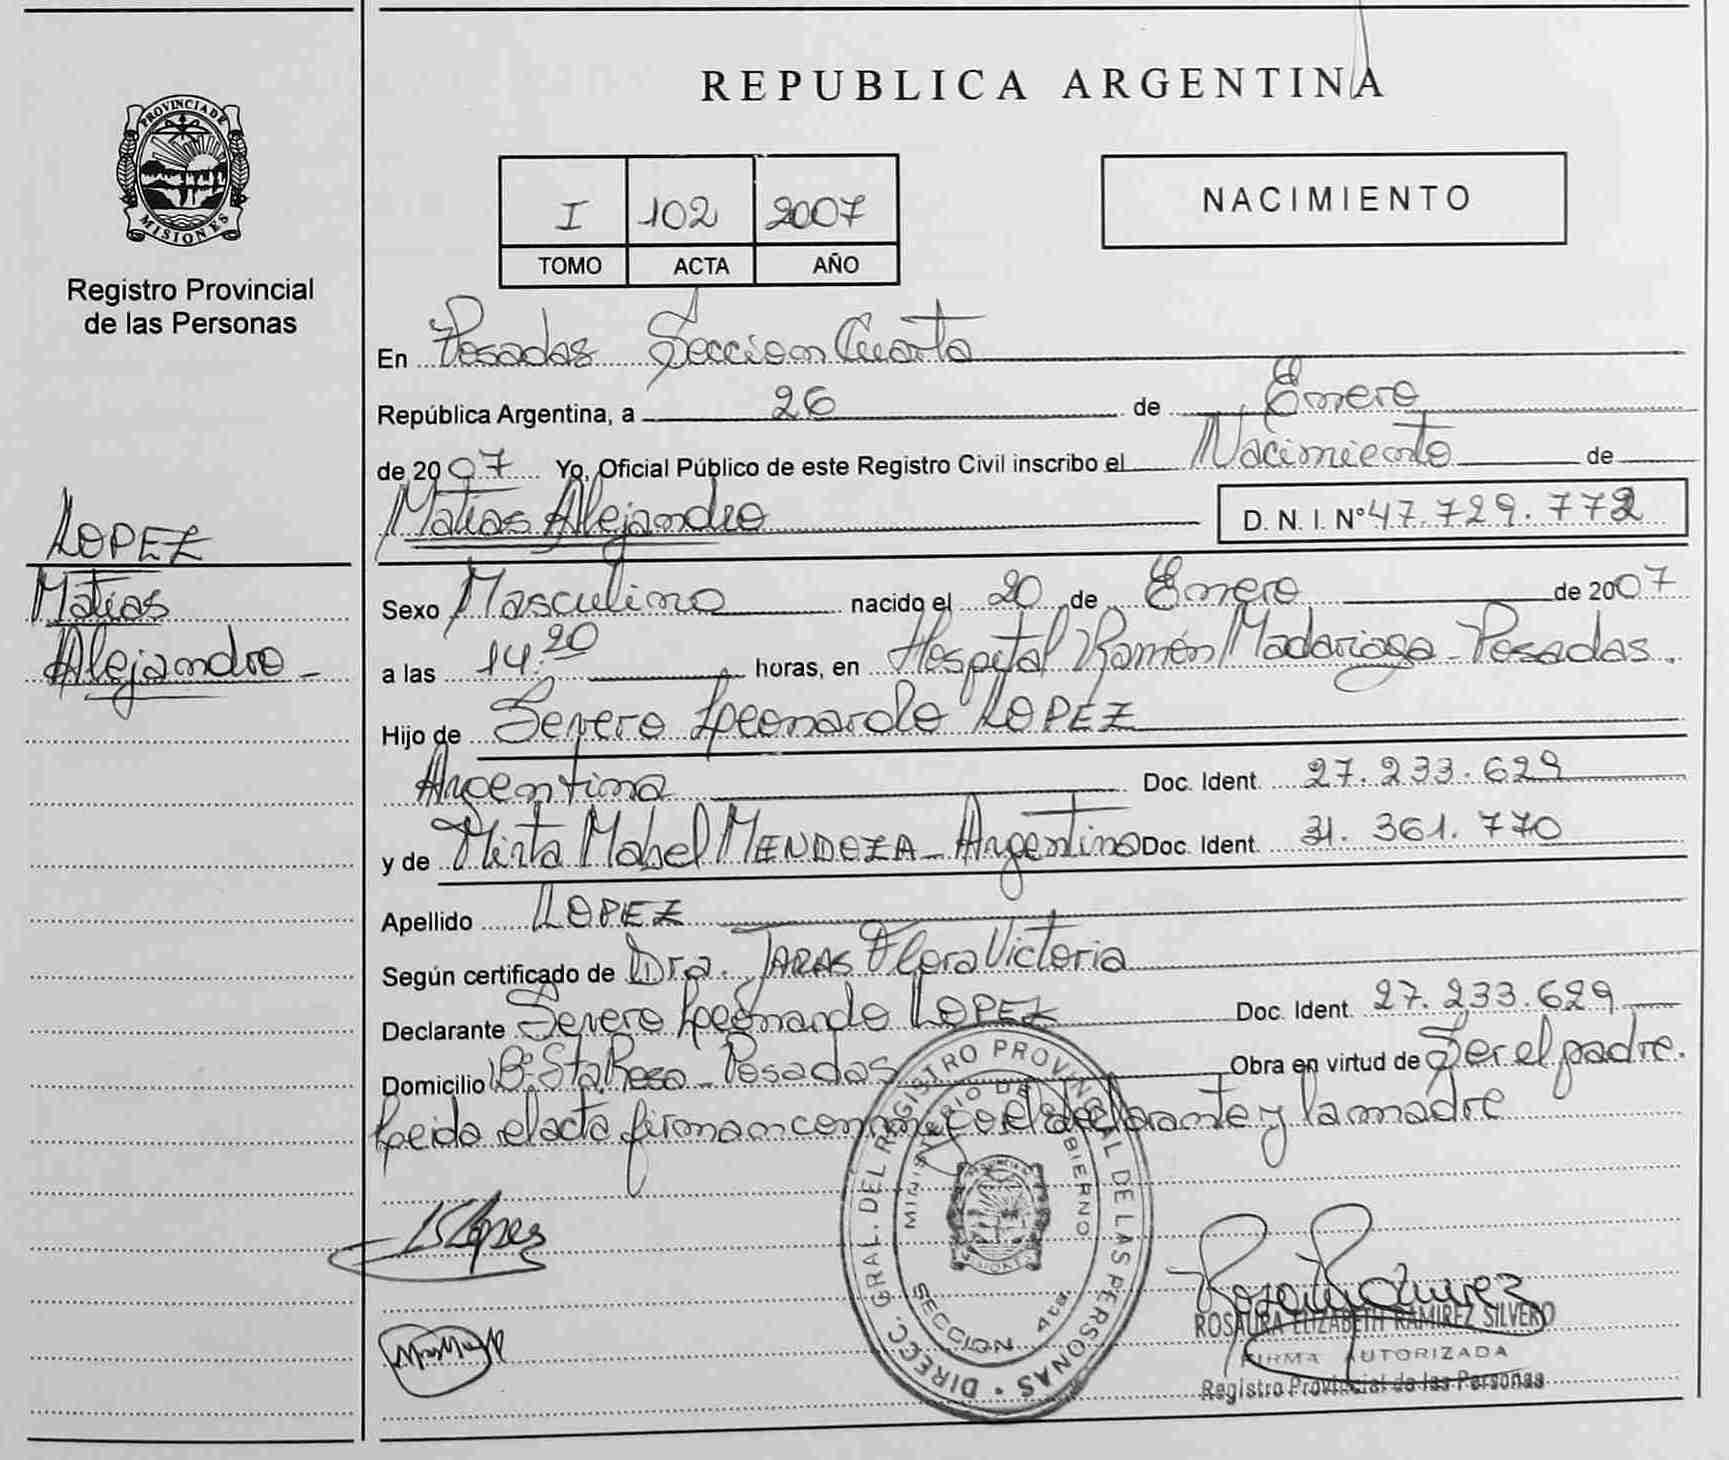 PROVINCIA DE
MISIONES
Registro Provincial
de las Personas
LOPEZ
Matias
Alejandro -
REPUBLICA ARGENTINA
I 102 2007
TOMO ACTA AÑO
NACIMIENTO
En Posadas Seccion Cuarta
República Argentina, a 26 de Enero
de 2007 Yo, Oficial Público de este Registro Civil inscribo el Nacimiento de
Matias Alejandro D. N. I. Nº 47.729.772
Sexo Masculino nacido el 20 de Enero de 2007
a las 14:20 horas, en Hospital Ramón Madariaga - Posadas.
Hijo de Severo Leonardo LOPEZ
Argentino Doc. Ident. 27.233.629
y de Mirta Mabel MENDOZA - Argentina Doc. Ident. 31.361.770
Apellido LOPEZ
Según certificado de Dra. TARAS Flora Victoria
Declarante Severo Leonardo LOPEZ Doc. Ident. 27.233.629
Domicilio Bº Sta Rosa - Posadas Obra en virtud de Ser el padre.
Leida el acta firman conmigo el declarante y la madre
DIRECC. GRAL. DEL REGISTRO PROVINCIAL DE LAS PERSONAS
MINISTERIO DE GOBIERNO
SECCION 4ta
LS Lopez
ROSAURA ELIZABETH RAMIREZ SILVERO
FIRMA AUTORIZADA
Registro Provincial de las Personas